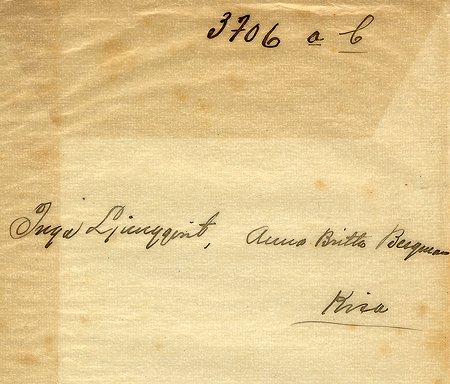 3706 a b
Inga Ljungqvist, Anna Britta Bergman
Kisa